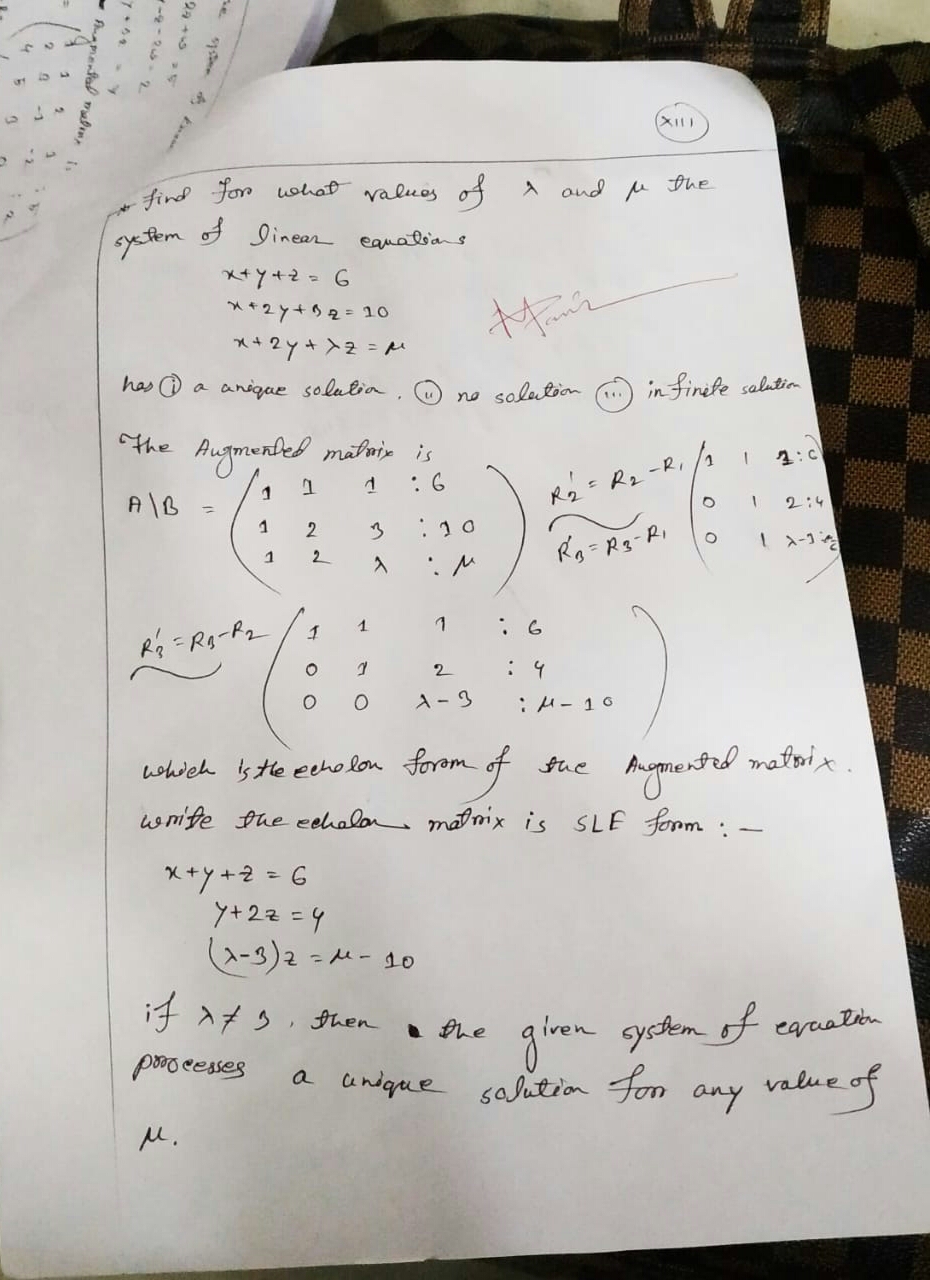 XIII
* find for what values of λ and μ the
system of linear equations
x+y+z = 6
x+2y+3z = 10
x+2y+λz = μ
has (i) a unique solution, (ii) no solution (iii) infinite solution
The Augmented matrix is
A\B = ( 1 1 1 : 6
1 2 3 : 10
1 2 λ : μ )
R2' = R2 - R1
R3' = R3 - R1
( 1 1 1 : 6
0 1 2 : 4
0 1 λ-1 :
R3' = R3 - R2
( 1 1 1 : 6
0 1 2 : 4
0 0 λ-3 : μ-10 )
which is the echelon form of the Augmented matrix.
write the echelon matrix is SLE form :-
x+y+z = 6
y+2z = 4
(λ-3)z = μ - 10
if λ ≠ 3, then the given system of equation
processes a unique solution for any value of
μ.